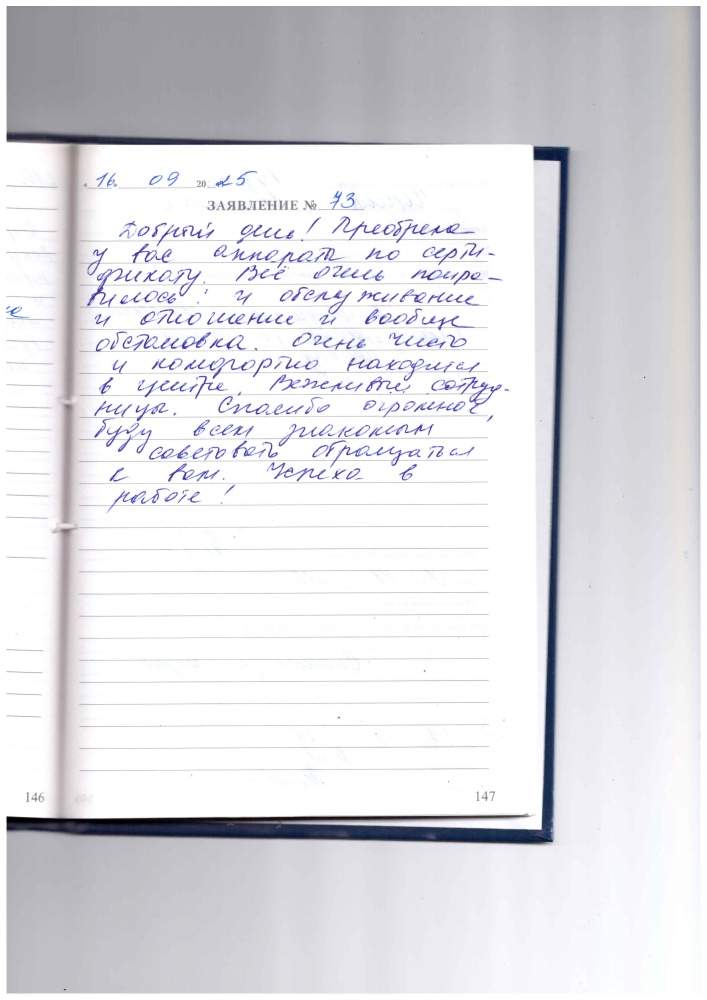 16. 09 2025
ЗАЯВЛЕНИЕ № 73
Добрый день! Преобрела
у вас аппараты по серти-
фикату. Всё очень понра-
вилось: и обслуживание
и отношение и вообще
обстановка. Очень чисто
и комфортно находится
в центре. Вежливый сотруд-
ницы. Спасибо огромное,
буду всем знакомым
советовать обращаться
к вам. Успеха в
работе!
146
147